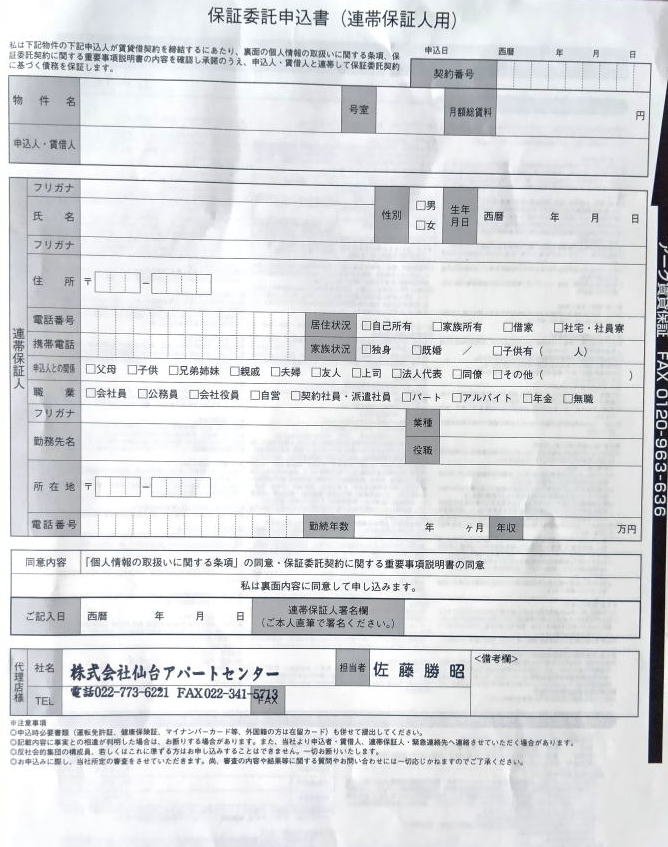 保証委託申込書（連帯保証人用）
私は下記物件の下記申込人が賃貸借契約を締結するにあたり、裏面の個人情報の取扱いに関する条項、保
証委託契約に関する重要事項説明書の内容を確認し承諾のうえ、申込人・賃借人と連帯して保証委託契約
に基づく債務を保証します。
申込日 西暦 年 月 日
契約番号
物件名 号室 月額総賃料 円
申込人・賃借人
連帯保証人
フリガナ
氏名 性別 □男 □女 生年月日 西暦 年 月 日
フリガナ
住所 〒 −
電話番号 居住状況 □自己所有 □家族所有 □借家 □社宅・社員寮
携帯電話 家族状況 □独身 □既婚 ／ □子供有（ 人）
申込人との関係 □父母 □子供 □兄弟姉妹 □親戚 □夫婦 □友人 □上司 □法人代表 □同僚 □その他（ ）
職業 □会社員 □公務員 □会社役員 □自営 □契約社員・派遣社員 □パート □アルバイト □年金 □無職
フリガナ 業種
勤務先名 役職
所在地 〒 −
電話番号 勤続年数 年 ヶ月 年収 万円
同意内容 「個人情報の取扱いに関する条項」の同意・保証委託契約に関する重要事項説明書の同意
私は裏面内容に同意して申し込みます。
ご記入日 西暦 年 月 日 連帯保証人署名欄
（ご本人直筆で署名ください。）
代理店様
社名 株式会社仙台アパートセンター 担当者 佐藤勝昭 <備考欄>
TEL 電話022-773-6221 FAX022-341-5713
FAX
※注意事項
○申込時必要書類（運転免許証、健康保険証、マイナンバーカード等、外国籍の方は在留カード）も併せて提出してください。
○記載内容に事実との相違が判明した場合は、お断りする場合があります。また、当社より申込者・賃借人、連帯保証人・緊急連絡先へ連絡させていただく場合があります。
○反社会的集団の構成員、若しくはこれに準ずる方はお申し込みすることはできません。一切お断りいたします。
○お申込みに際し、当社所定の審査をさせていただきます。尚、審査の内容や結果等に関する質問やお問い合わせには一切応じかねますのでご了承ください。
アーク賃貸保証 FAX 0120-963-636